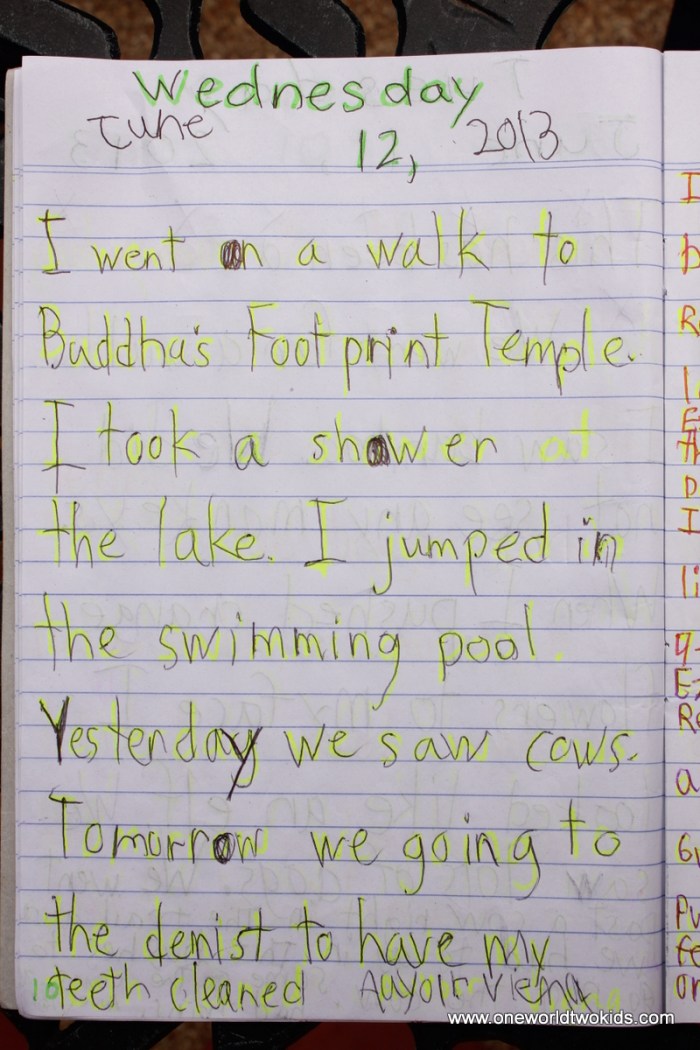 Wednesday
June 12, 2013
I went on a walk to
Buddha's Footprint Temple.
I took a shower at
the lake. I jumped in
the swimming pool.
Yesterday we saw cows.
Tomorrow we going to
the denist to have my
16 teeth cleaned
www.oneworldtwokids.com